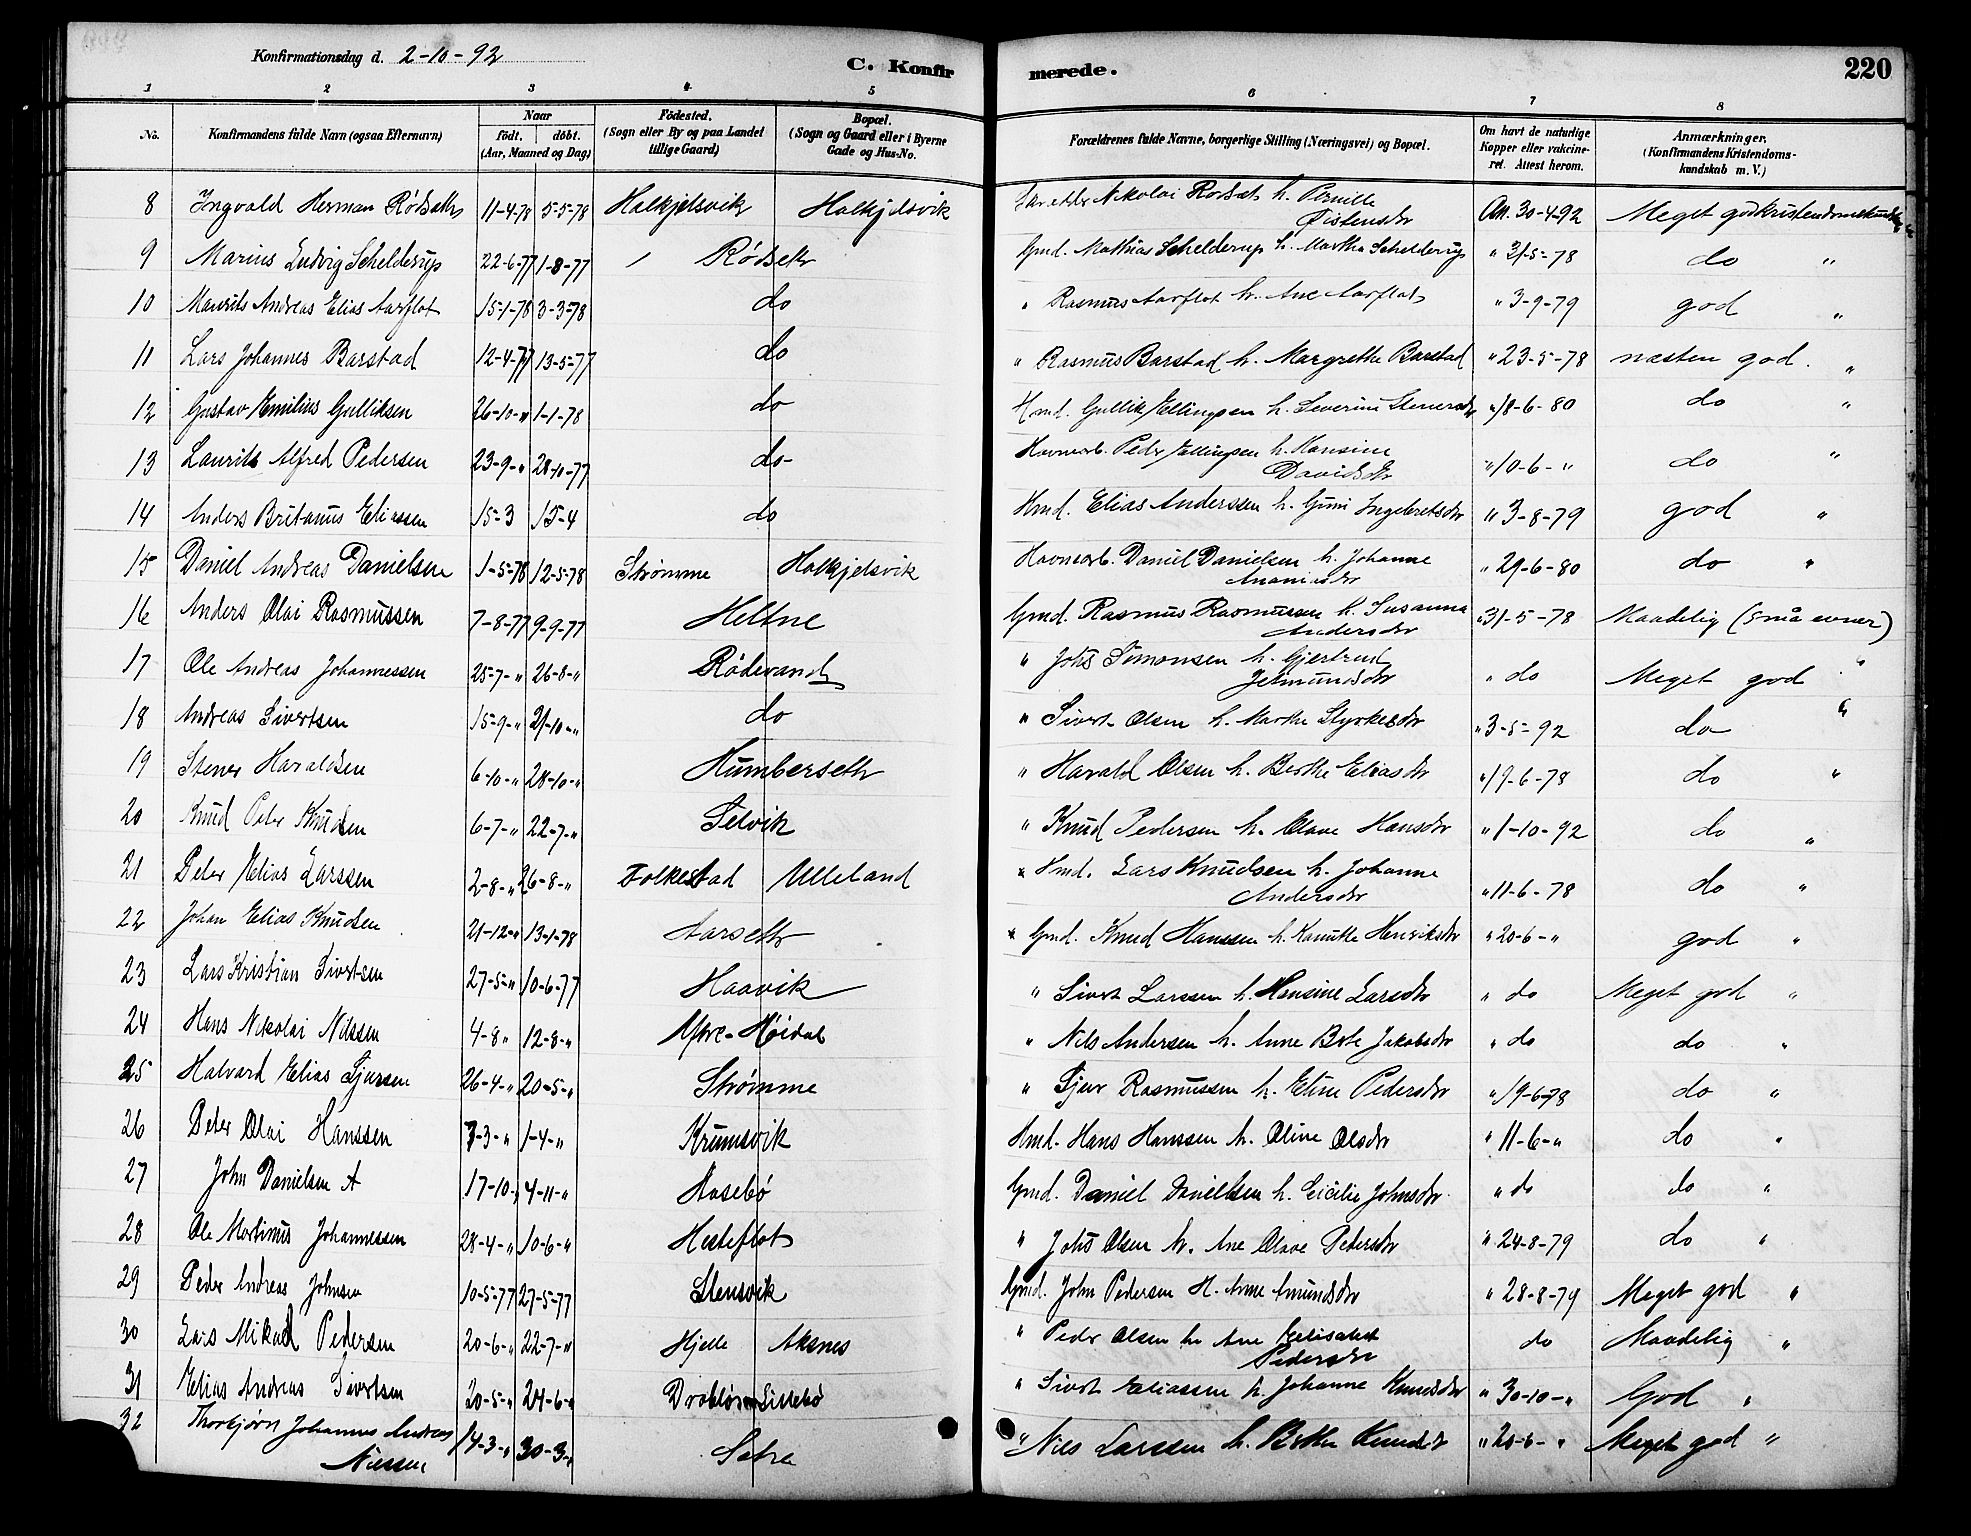 Konfirmationsdag d. 2-10-92
C. Konfirmerede.
220
1 2 3 4 5 6 7 8
No. Konfirmandens fulde Navn (ogsaa Efternavn) Naar født. døbt. (Aar, Maaned og Dag) Fødested. (Sogn eller By og paa Landet tillige Gaard) Bopæl. (Sogn og Gaard eller i Byerne Gade og Hus-No. Forældrenes fulde Navne, borgerlige Stilling (Næringsvei) og Bopæl. Om havt de naturlige Kopper eller vakcineret. Attest herom. Anmærkninger. (Konfirmandens Kristendomskundskab m. V.)
8 Ingvald Herman Rødseth 11-4-78 5-5-78 Halkjelsvik Halkjelsvik Nikolai Rødset h. Pernille Østensdr Att. 30-4-92 Meget god kristendomskundsk
9 Marius Ludvig Schelderup 22-6-77 1-8-77 Rødseth Gmd. Mathias Schelderup h. Martha Schelderup " 31-5-78 do "
10 Maurits Andreas Elias Aarflot 15-1-78 3-3-78 do " Rasmus Aarflot h. Ane Aarflot " 3-9-79 god "
11 Lars Johannes Barstad 12-4-77 13-5-77 do " Rasmus Barstad h. Margrethe Barstad " 23-5-78 næsten god. "
12 Gustav Emilius Gulliksen 26-10-" 1-1-78 do Hmd. Gullik Ellingsen h. Severine Stenersdr " 18-6-80 do "
13 Laurits Alfred Pedersen 23-9-" 28-10-77 do Havnearb. Peder Ellingsen h. Hansine Davidsdr " 10-6-" do "
14 Anders Britanus Eliassen 15-3 15-4 do Hmd. Elias Anderssen h. Guni Ingebretsdr " 3-8-79 god "
15 Daniel Andreas Danielsen 1-5-78 12-5-78 Strømme Halkjelsvik Havnearb. Daniel Danielsen h. Johanne Ananiasdr " 29-6-80 do "
16 Anders Olai Rasmussen 7-8-77 9-9-77 Heltne Gmd. Rasmus Rasmussen h. Susanna Andersdr " 31-5-78 Maadelig (små evner)
17 Ole Andreas Johannessen 25-7-" 26-8-" Rødevand " Johs Simonsen h. Gjertrud Jetmundsdr " do Meget god "
18 Andreas Sivertsen 15-9-" 21-10-" do " Sivert Olsen h. Marthe Styrkesdr " 3-5-92 do "
19 Stener Haraldsen 6-10-" 28-10-" Humberseth " Harald Olsen h. Berthe Eliasdr " 19-6-78 do "
20 Knud Peter Knudsen 6-7-" 22-7-" Selvik " Knud Pedersen h. Olave Hansdr " 1-10-92 do "
21 Peter Elias Larssen 2-8-" 26-8-" Folkestad Ulleland Hmd. Lars Knudsen h. Johanne Andersdr " 11-6-78 do "
22 Johan Elias Knudsen 21-12-" 13-1-78 Aarseth Gmd. Knud Hanssen h. Hendriksdr " 20-6-" god "
23 Lars Kristian Sivertsen 27-5-" 10-6-77 Haavik " Sivert Larssen h. Hansine Larsdr " do Meget god "
24 Hans Nikolai Nilssen 4-8 " 12-8-" Yttre-Høidal " Nils Andersen h. Anne Brte Jakobsdr " do do "
25 Halvard Elias Sjursen 26-4-" 20-5-" Strømme " Sjur Rasmussen h. Eline Pedersdr " 19-6-78 do "
26 Peter Olai Hanssen 7-3-" 1-4-" Krumsvik Hmd. Hans Hanssen h. Oline Olsdr " 11-6-" do "
27 John Danielsen A 17-10-" 4-11-" Aasebø Gmd. Daniel Danielsen h. Cicilie Johnsdr. " do do "
28 Ole Martinus Johannessen 28-4-" 10-6-" Hesteflot " Johs Olsen h. Ane Olave Pedersdr " 24-8-79 do "
29 Peder Andreas Johnsen 10-5-77 27-5-77 Stensvik Gmd. John Pedersen H. Anne Amundsdr " 28-8-79 Meget god "
30 Lars Mikael Pedersen 20-6-" 22-7-" Hjelle Aksnes " Peder Olsen h. Ane Elisabet Pedersdr do Maadelig "
31 Elias Andreas Sivertsen 20-5-" 24-6-" Lillebø " Sivert Eliassen h. Johanne Knudsdr " 30-10-" God "
32 Thorbjørn Johannes Andreas Nilssen 14-3-" 30-3-" Sætre " Nils Larssen h. Berthe Knudsdr " 20-6-" Meget god "